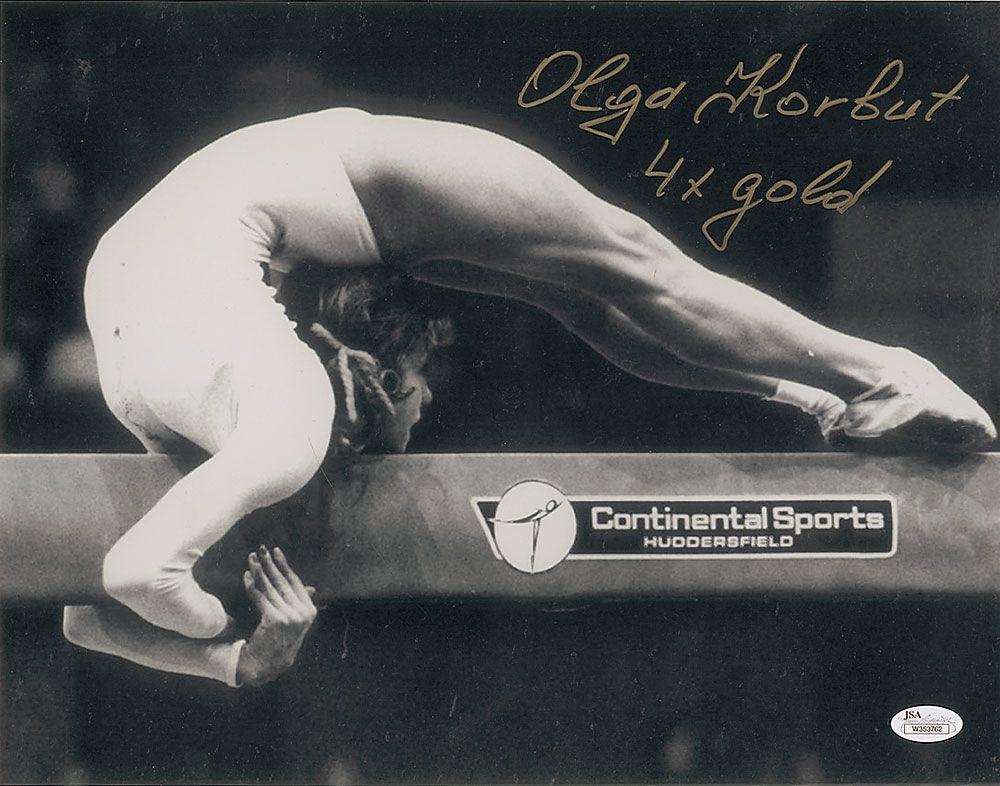 Olga Korbut
4x gold
Continental Sports
HUDDERSFIELD
JSA
W353762